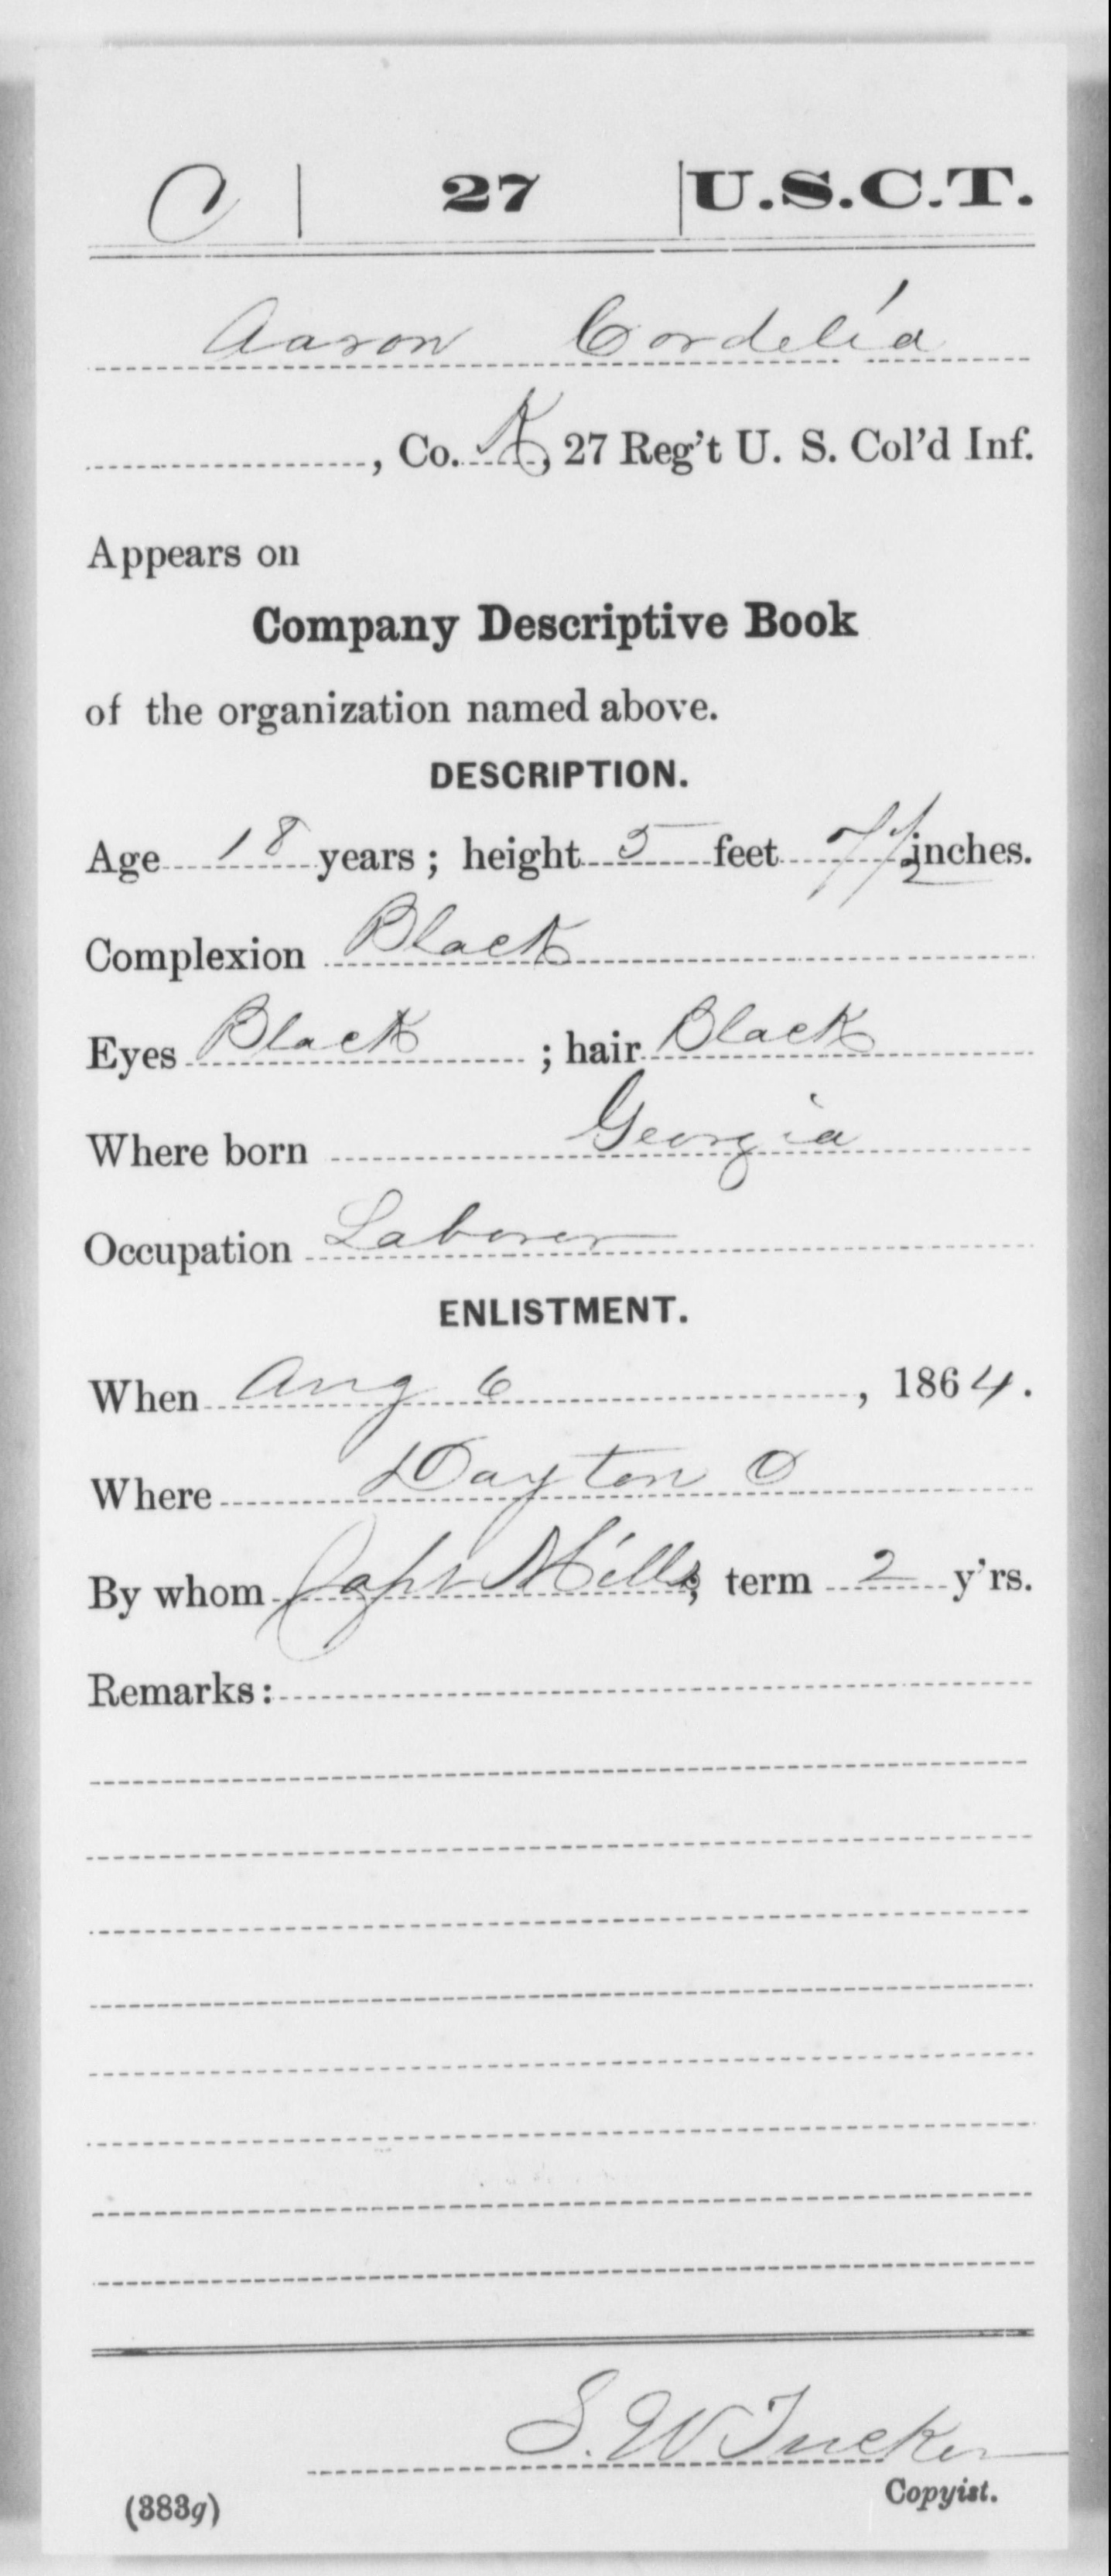 C | 27 | U.S.C.T.
Aaron Cordelia
, Co. K, 27 Reg't U. S. Col'd Inf.
Appears on
Company Descriptive Book
of the organization named above.
DESCRIPTION.
Age 18 years; height 5 feet 7 1/2 inches.
Complexion Black
Eyes Black ; hair Black
Where born Georgia
Occupation Laborer
ENLISTMENT.
When Aug 6, 1864.
Where Dayton O
By whom Capt Mills; term 2 y'rs.
Remarks:
S. W. Tucker
Copyist.
(383g)